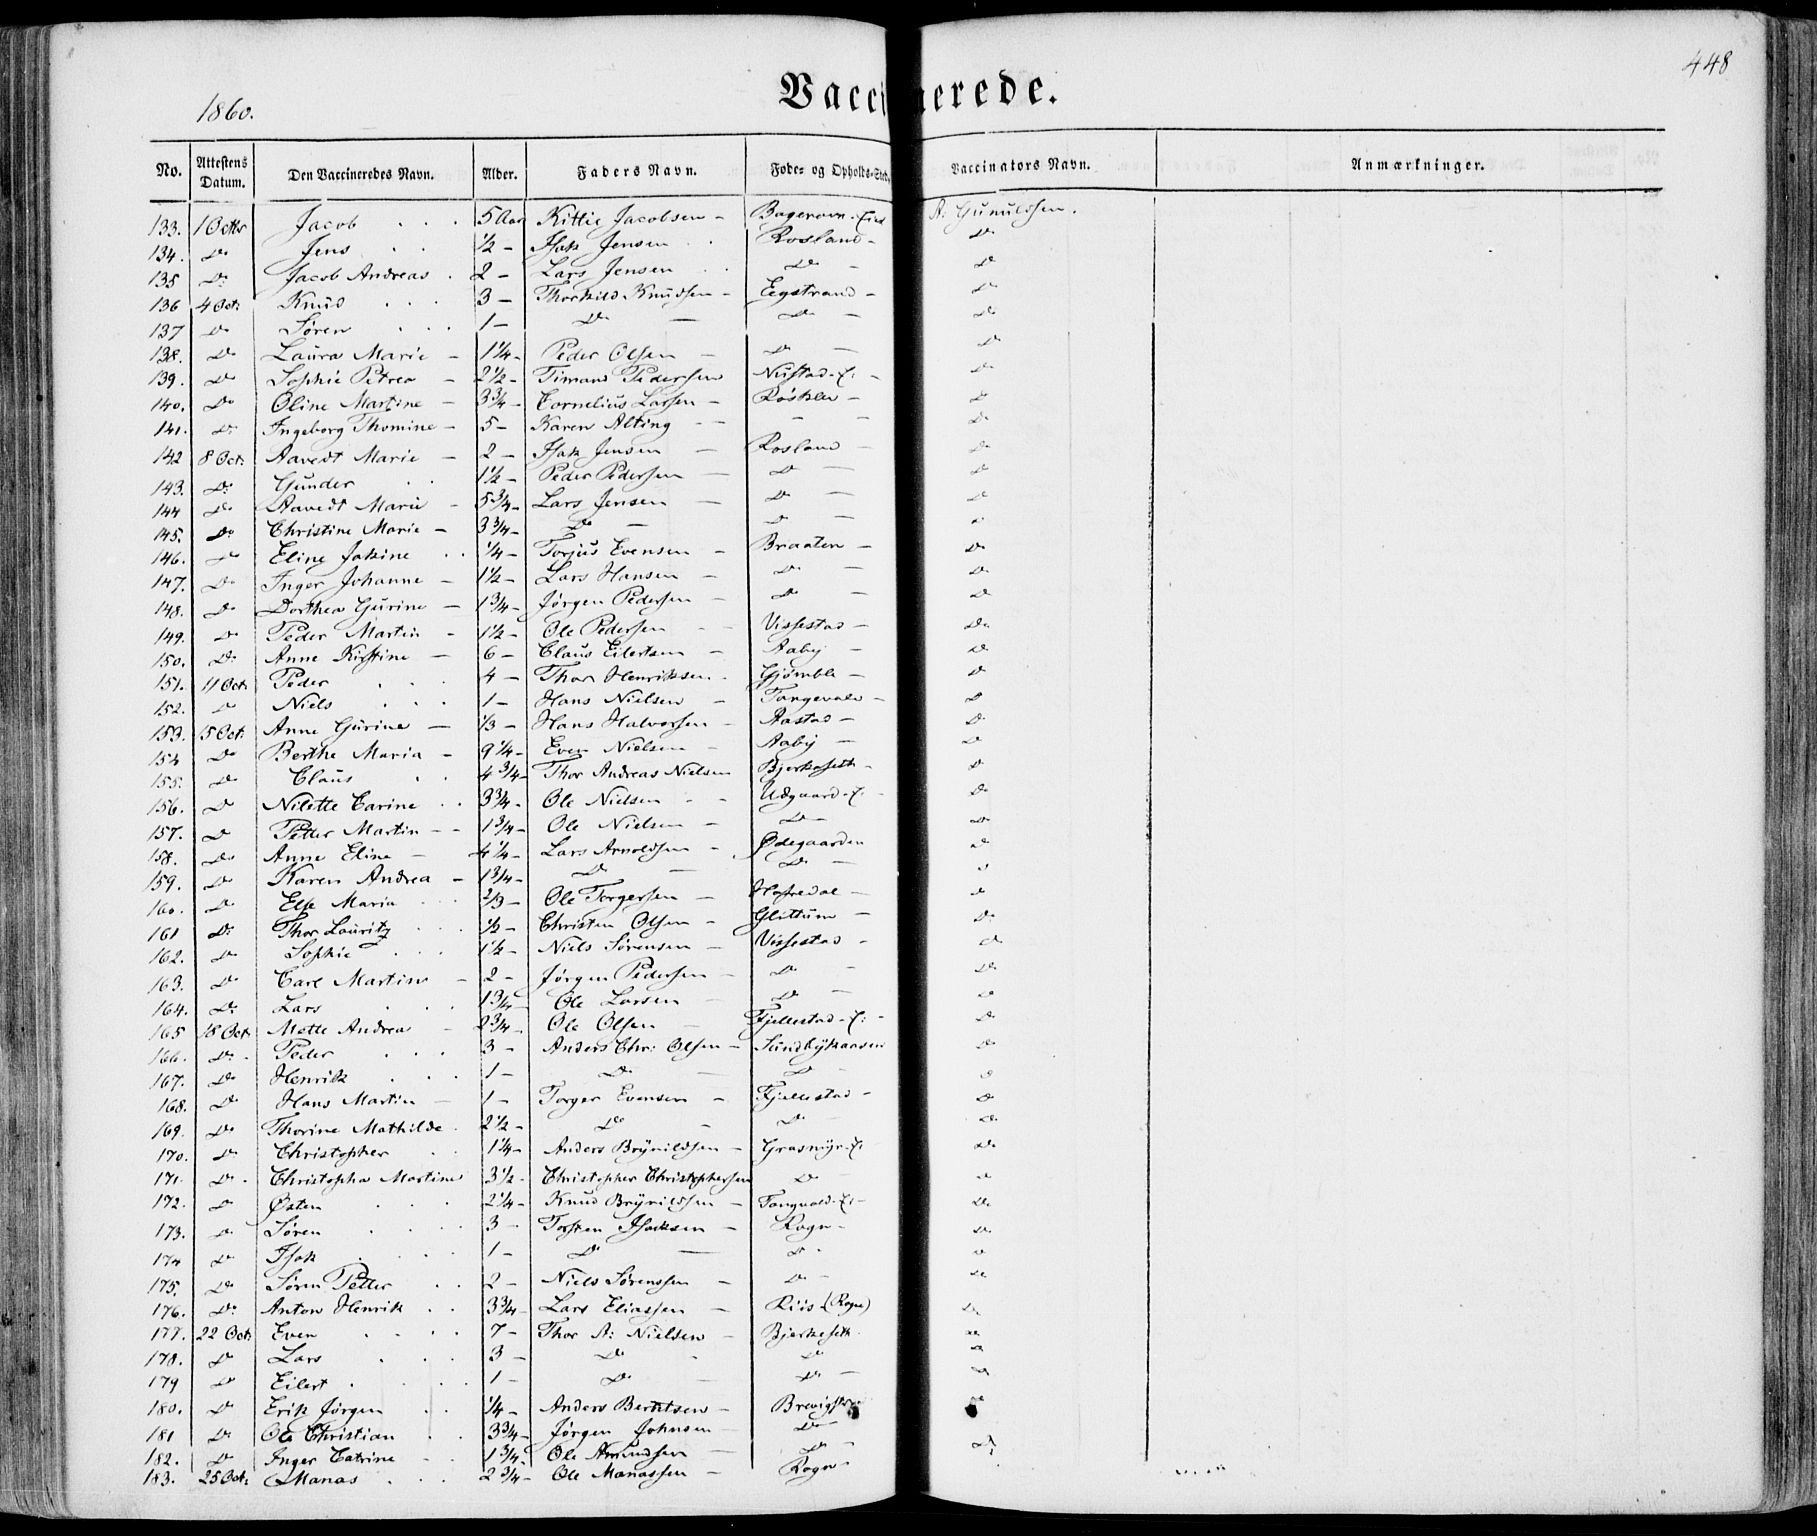 448
1860.
Vaccinerede.
No. Attestens Datum. Den Vaccineredes Navn. Alder. Faders Navn. Føde- og Opholds-Sted. Vaccinators Navn. Anmærkninger.
133. 1 Octbr Jacob 5 Aar Kittil Jacobsen - A: Gunulssen.
134. Do Jens ½ - Isak Jensen Rosland - Do
135 Do Jacob Andreas 2 - Lars Jensen Do - Do
136 4 Oct: Knud 3 - Thorkild Knudsen - Eegstrand - Do
137 Do Søren 1 - Do - Do - Do
138. Do Laura Marie - 1¼ - Peder Olsen - Do - Do
139. Do Sophie Petrea - 2½ - Timand Pedersen Nustad-E: - Do
140. Do Oline Martine - 3¾ - Cornelius Larsen - - Do
141. Do Ingeborg Thomine - 5 - Karen Alting - - - - Do
142 8 Oct: Aavedt Marie - 2 - Isak Jensen - Rosland - Do
143. Do Gunder 1½ - Peder Pedersen Do - Do
144 Do Aavedt Marie - 5¾ - Lars Jensen - Do - Do
145. Do Christine Marie - 3¾ - Do - Do - Do
146. Do Eline Jakine ¼ - Torjus Evensen - Braaten - Do
147. Do Inger Johanne - 1½ - Lars Hansen - Do - Do
148. Do Dorthea Gurine - 1¾ - Jørgen Pedersen - Do - Do
149. Do Peder Martin - 1½ - Ole Pedersen - Vissestad - Do
150. Do Anne Kirstine - 6 - Claus Eilertsen - Aaby - Do
151. 11 Oct: Peder 4 - Thor Henriksen - Gjømle - Do
152. Do Niels 1 - Hans Nielsen - Tangevald - Do
153. 15 Oct: Anne Gurine - ⅓ - Hans Halvorsen - Aastad - Do
154 Do Berthe Maria - 9¼ - Even Nielsen - Aaby - Do
155. Do Claus 4¾ - Thor Andreas Nielsen Bjerkeseth - Do
156. Do Nilette Carine 3¾ - Ole Nielsen - - Udgaard-E: - Do
157. Do Petter Martin - - 1¾ - Ole Nielsen - Do - Do
158. Do Anne Eline - 4¼ - Lars Arnoldsen - Ødegaarden Do
159. Do Karen Andrea - 1¾ - Do - Do - Do
160. Do Else Maria ⅔ - Ole Torgersen - Hafredal - Do
161 Do Thor Lauritz ½ - Christen Olsen - Glittum - Do
162. Do Sophie 1½ - Niels Sørensen - Vissestad - Do
163. Do Carl Martin - 2 - Jørgen Pedersen - Do - Do
164. Do Lars 1¾ - Ole Larsen - Do - Do
165 18 Oct: Mette Andrea - 2¾ - Ole Olsen - Fjellestad-E: - Do
166. Do Peder 3 - Anders Chr: Olsen - Sundbykaasen Do
167. Do Henrik 1 - Do - Do - Do
168. Do Hans Martin - 1 - Torger Evensen - Fjellestad - Do
169. Do Thorine Mathilde 2½ - Do - Do - Do
170. Do Christopher 1¼ - Anders Brynildsen - Grasmyr-E: Do
171. Do Christopha Martine 3½ - Christopher Christophersen Do Do
172. Do Østen 2¼ - Knud Brynildsen - Tangvald-E: - Do
173. Do Søren 3 - Torsten Isaksen - Rogn - Do
174 Do Isak 1 - Do - Do - Do
175. Do Søren Petter 2 - Niels Sørenssen - Do - Do
176. Do Anton Henrik 3¾ - Lars Eliassen - Riis (Rogn) Do
177. 22 Oct: Even 7 - Thor A: Nielsen - Bjerkeseth Do
178. Do Lars 3 - Do Do Do
179 Do Eilert 1 - Do - Do - Do
180. Do Erik Jørgen ¼ - Anders Berntsen - Do
181 Do Ole Christian 3¾ - Jørgen Johnsen - Do
182. Do Inger Catrine 1¾ - Ole Amundsen - Do - Do
183. 25 Oct: Manas 2¾ - Ole Manassen - Rogn -